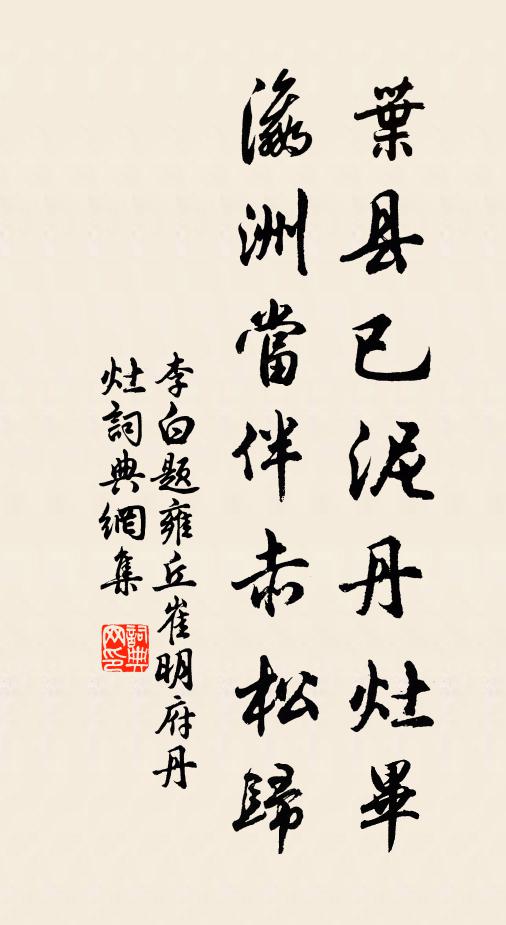 葉县已泥丹灶畢
瀛洲當伴赤松歸
李白题雍丘崔明府丹
灶詞典網集
詞典网印